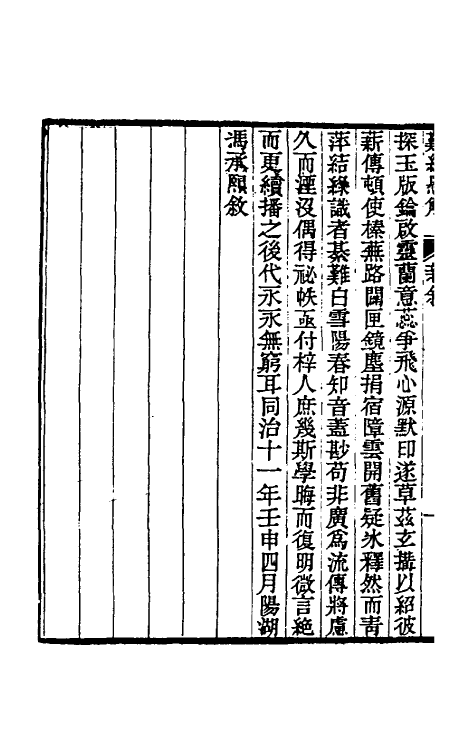 探玉版鑰啟靈蘭意蕊爭飛心源默印遂草茲玄搆以紹彼
薪傳頓使榛蕪路闢匣鏡塵捐宿障雲開舊疑氷釋然而青
萍結綠識者綦難白雪陽春知音蓋尠苟非廣為流傳將慮
久而湮沒偶得祕帙亟付梓人庶幾斯學晦而復明微言絕
而更續播之後代永永無窮耳同治十一年壬申四月陽湖
馮承熙敘